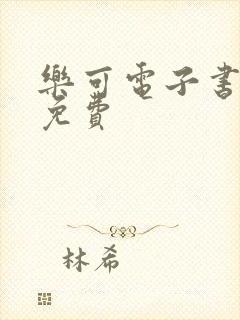 樂可電子書
免費
林希